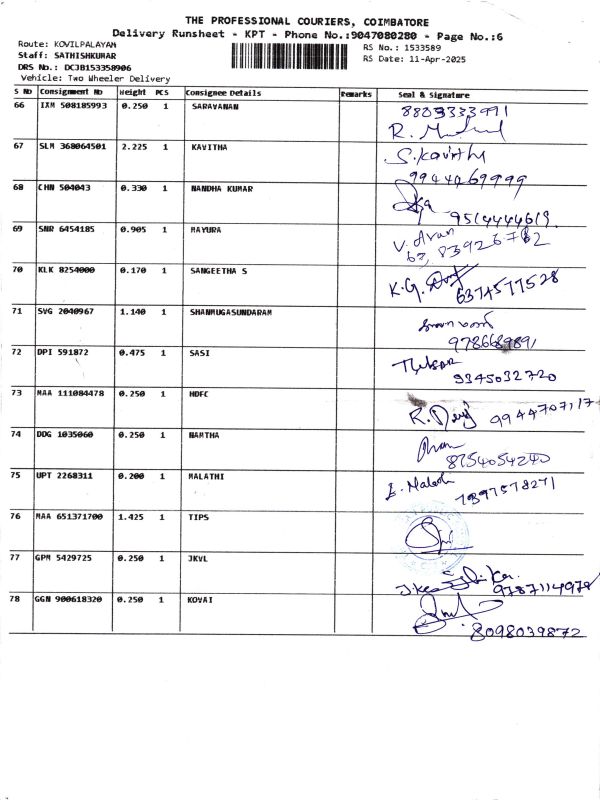 THE PROFESSIONAL COURIERS, COIMBATORE
Delivery Runsheet - KPT - Phone No.:9047080280 - Page No.:6
Route: KOVILPALAYAM
RS No.: 1533589
Staff: SATHISHKUMAR
RS Date: 11-Apr-2025
DRS No.: DCJB153358906
Vehicle: Two Wheeler Delivery
S NO Consignment No Weight PCS Consignee Details Remarks Seal & Signature
66 IXM 508185993 0.250 1 SARAVANAN 8803333991
R.
67 SLM 368064501 2.225 1 KAVITHA S. Kavitha
9944469999
68 CHN 504043 0.330 1 NANDHA KUMAR
9514444619
69 SNR 6454185 0.905 1 MAYURA V.
70 KLK 8254000 0.170 1 SANGEETHA S K.G.
6374577528
71 SVG 2040967 1.140 1 SHANMUGASUNDARAM
72 DPI 591872 0.475 1 SASI
9345032720
73 MAA 111084478 0.250 1 HDFC R. 9944707117
74 DDG 1035060 0.250 1 NAMTHA
8754054240
75 UPT 2268311 0.200 1 MALATHI
76 MAA 651371700 1.425 1 TIPS
77 GPM 5429725 0.250 1 JKVL
9787114978
78 GGN 900618320 0.250 1 KOVAI
8098039872